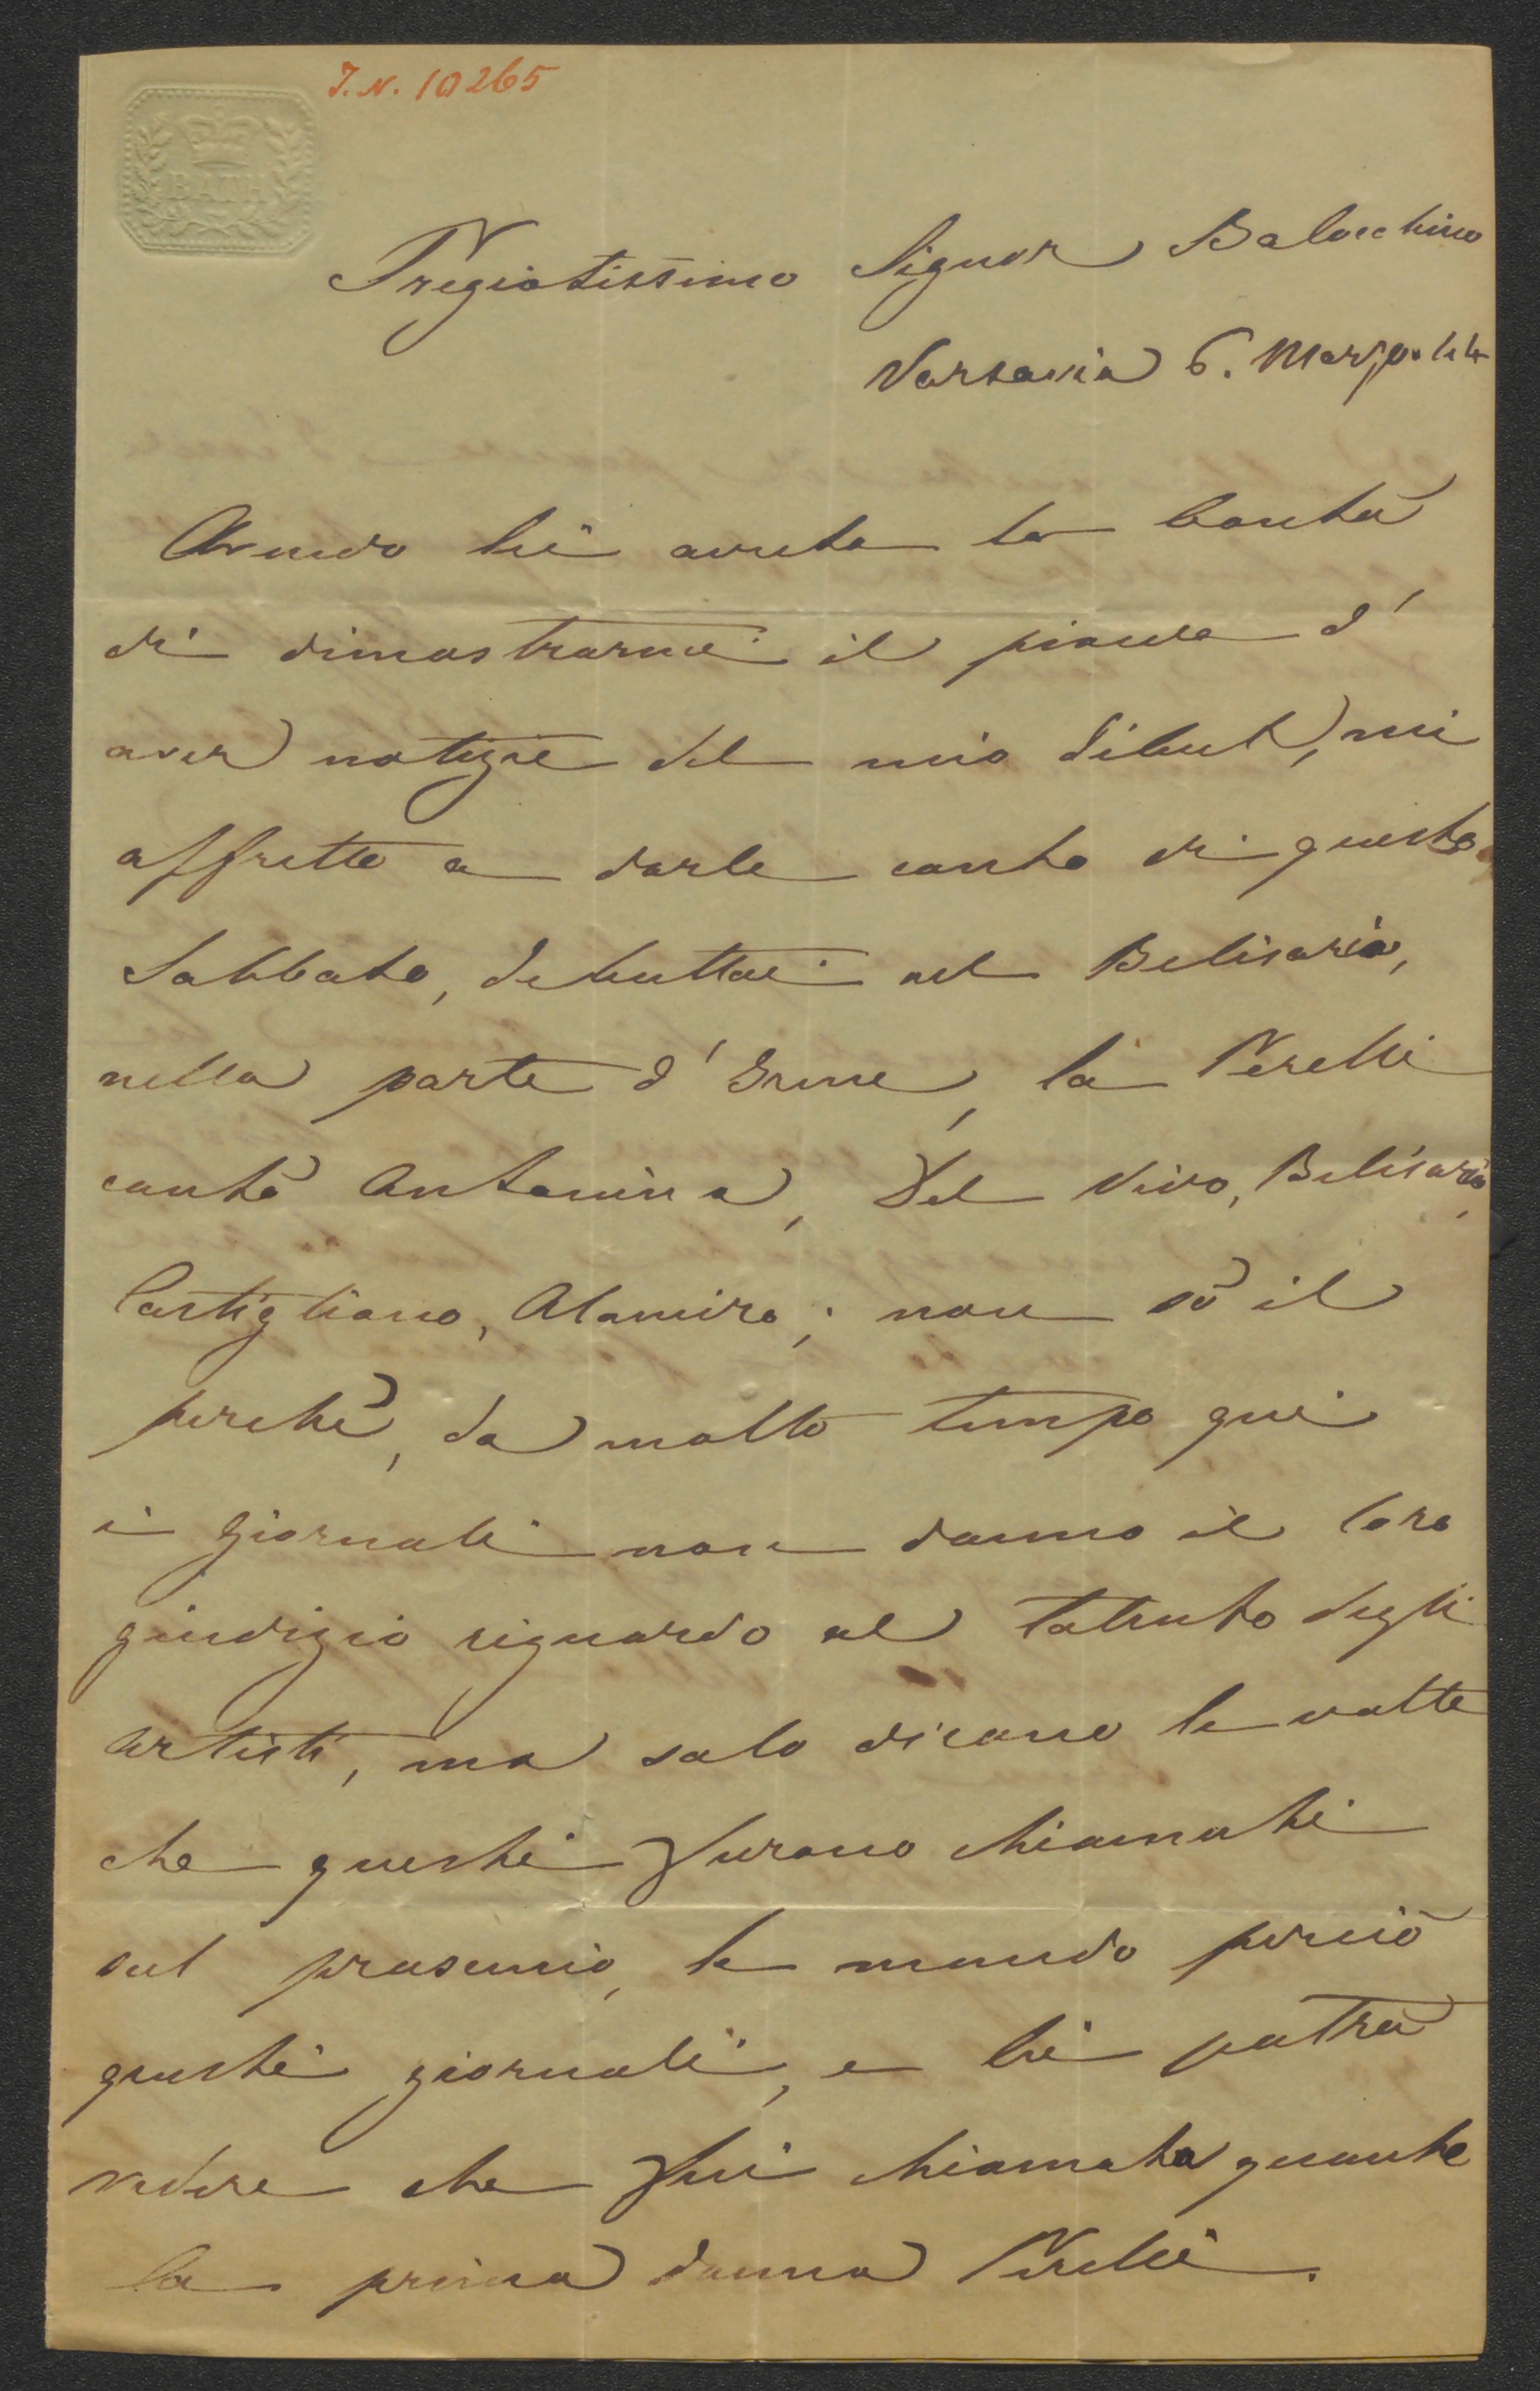 J. N. 10265
BATH
Pregiatissimo Signor Balocchino
Varsavia 6. Marzo. 44
Avendo lei avuta la bontà
di dimostrarmi il piacere d'
aver notizie del mio debut, mi
affretto a darle conto di questo.
Sabbato, debuttai nel Belisario,
nella parte d'Irene, la Perelli
cantò Antonina, Del Vivo, Belisario,
Castigliano, Alamiro; non sò il
perchè, da molto tempo qui
i giornali non danno il loro
giudizio riguardo al talento degli
artisti, ma solo dicono le volte
che questi furono chiamati
sul proscenio, le mando perciò
questi giornali, e lei potrà
vedere che fui chiamata quanto
la prima donna Perelli.